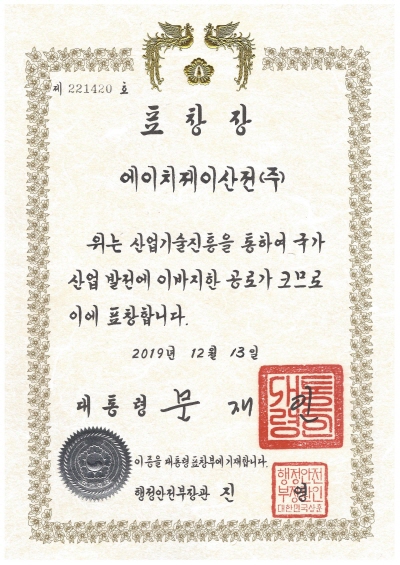 제 221420 호
표 창 장
에이치제이산전(주)
위는 산업기술진흥을 통하여 국가
산업 발전에 이바지한 공로가 크므로
이에 표창합니다.
2019년 12월 13일
대통령 문 재 인
이 증을 대통령표창부에 기재합니다.
행정안전부장관 진 영
행정안전
부장관인
대한민국상훈